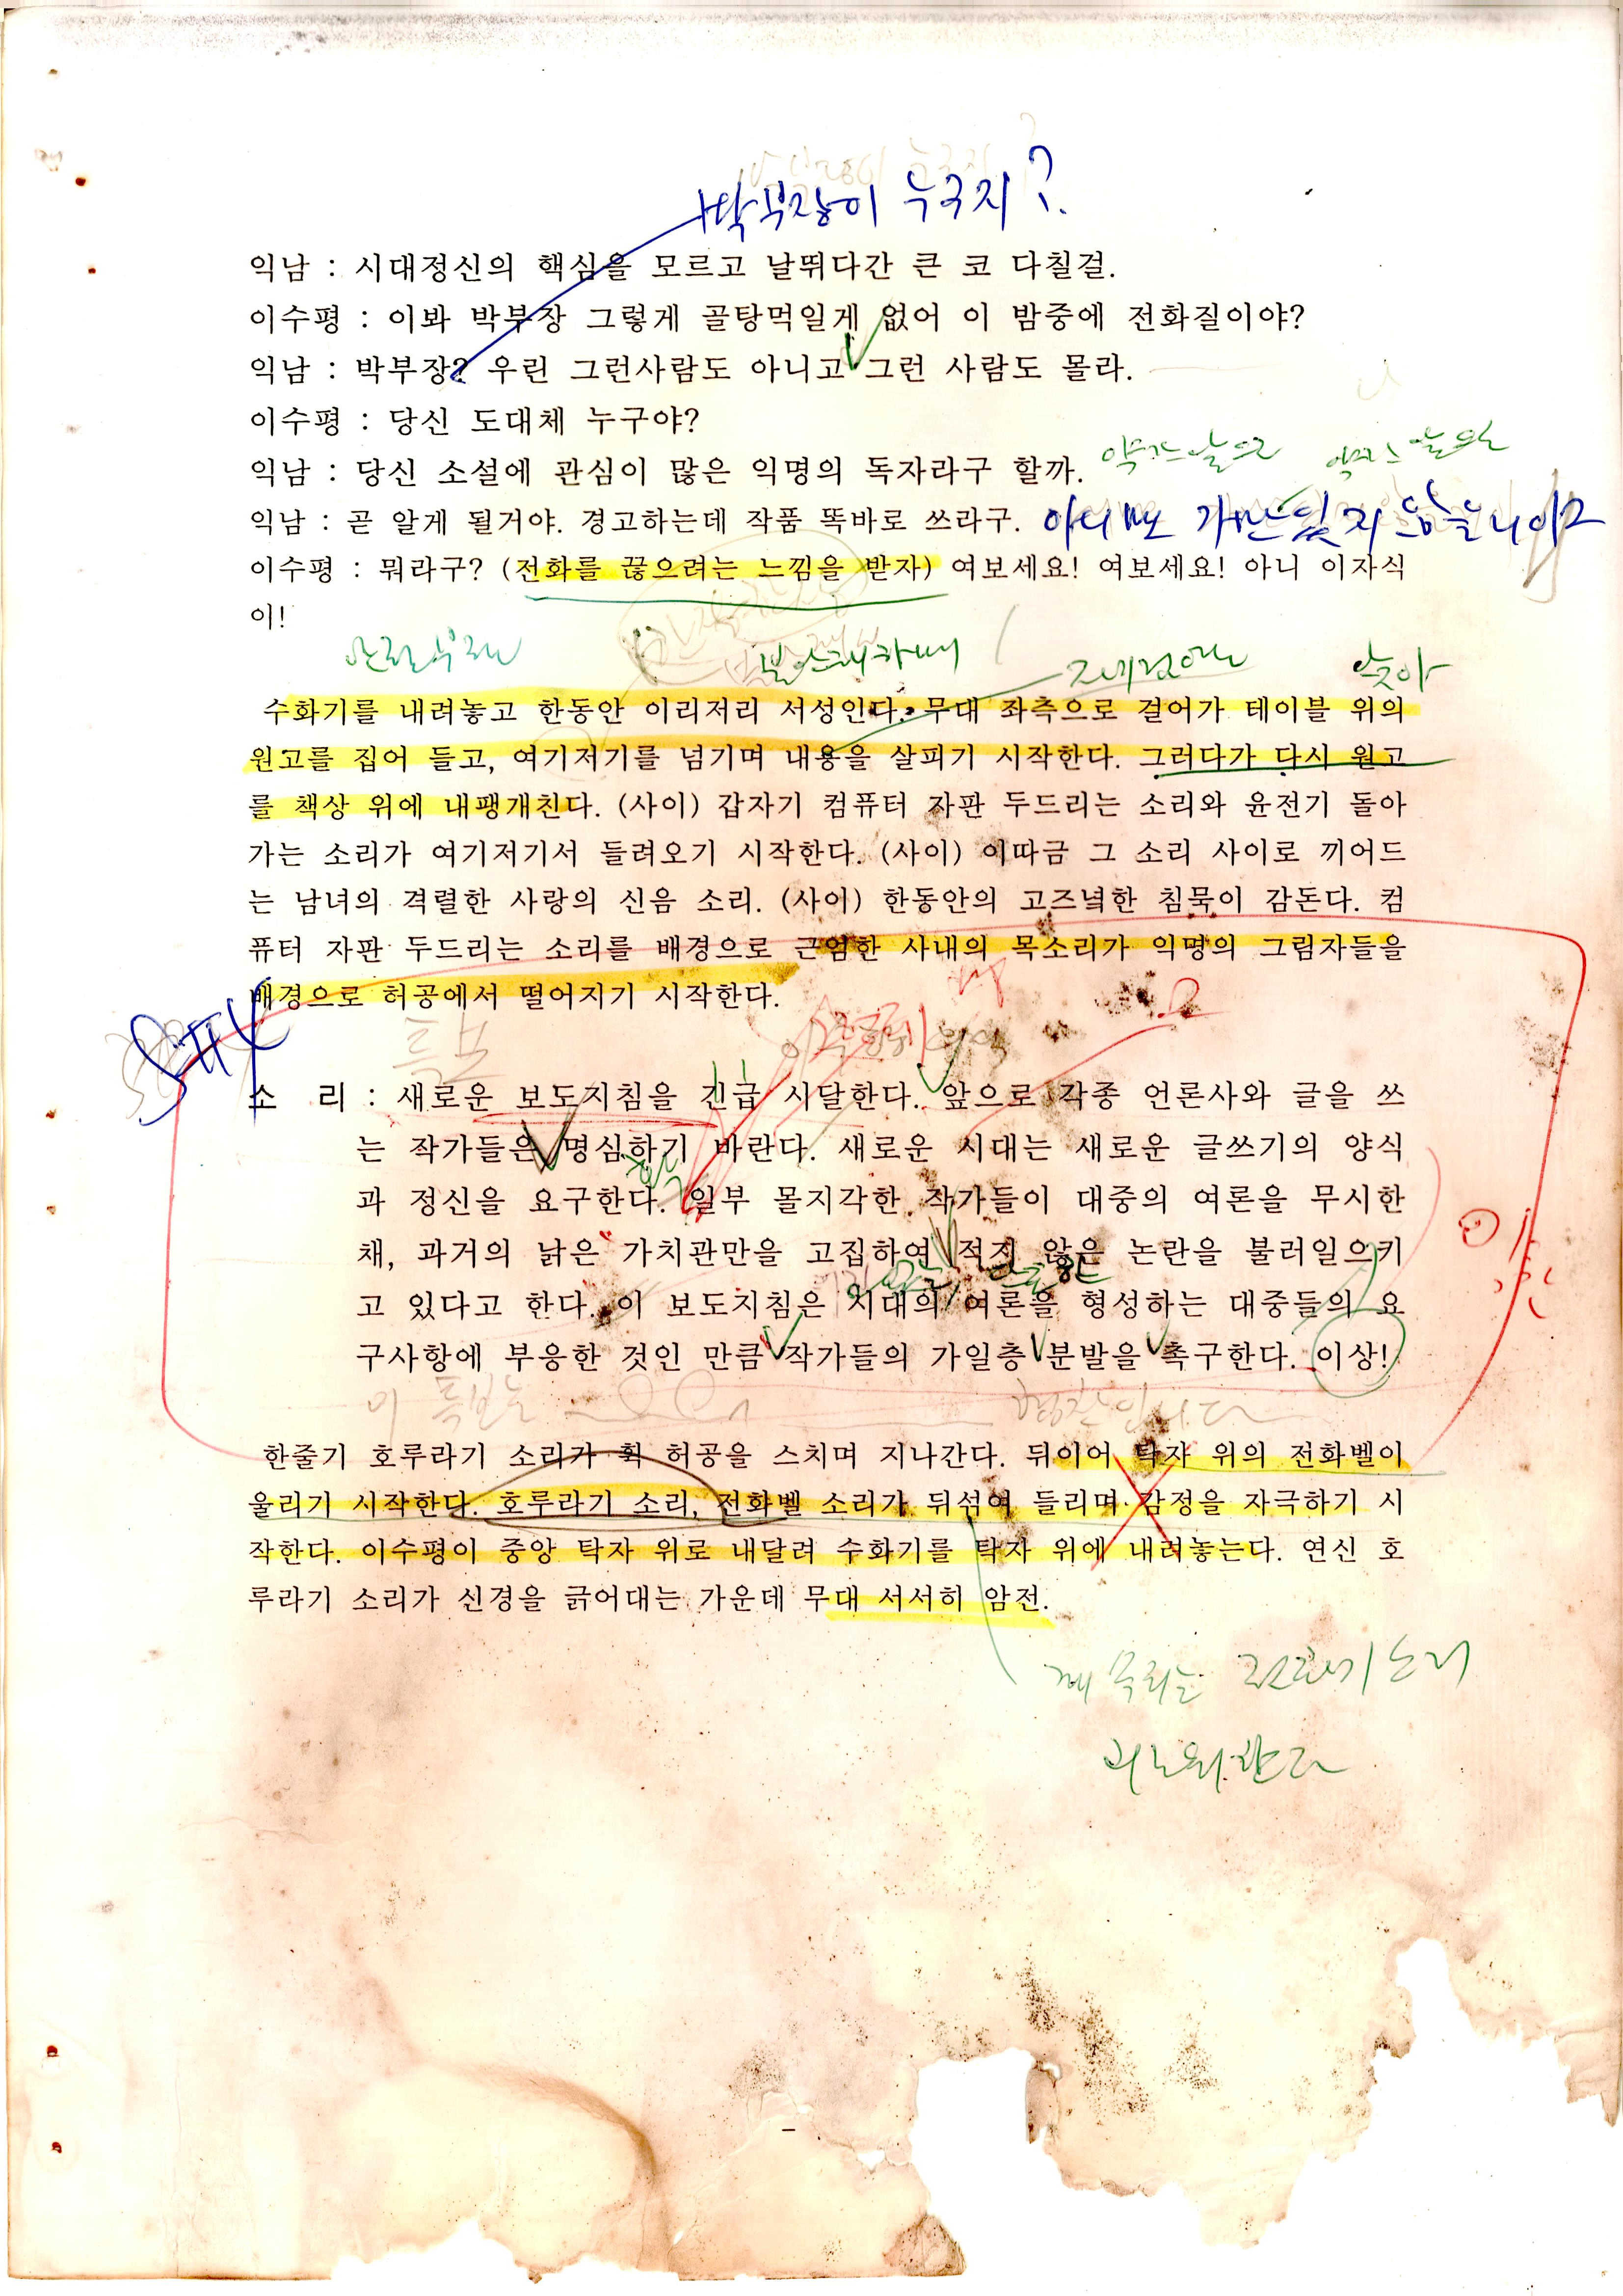 박부장이 누구지?
익남 : 시대정신의 핵심을 모르고 날뛰다간 큰 코 다칠걸.
이수평 : 이봐 박부장 그렇게 골탕먹일게 없어 이 밤중에 전화질이야?
익남 : 박부장? 우린 그런사람도 아니고 그런 사람도 몰라.
이수평 : 당신 도대체 누구야?
익남 : 당신 소설에 관심이 많은 익명의 독자라구 할까.
익남 : 곧 알게 될거야. 경고하는데 작품 똑바로 쓰라구.
이수평 : 뭐라구? (전화를 끊으려는 느낌을 받자) 여보세요! 여보세요! 아니 이자식
이!
불안해하며
수화기를 내려놓고 한동안 이리저리 서성인다. 무대 좌측으로 걸어가 테이블 위의
원고를 집어 들고, 여기저기를 넘기며 내용을 살피기 시작한다. 그러다가 다시 원고
를 책상 위에 내팽개친다. (사이) 갑자기 컴퓨터 자판 두드리는 소리와 윤전기 돌아
가는 소리가 여기저기서 들려오기 시작한다. (사이) 이따금 그 소리 사이로 끼어드
는 남녀의 격렬한 사랑의 신음 소리. (사이) 한동안의 고즈넠한 침묵이 감돈다. 컴
퓨터 자판 두드리는 소리를 배경으로 근엄한 사내의 목소리가 익명의 그림자들을
배경으로 허공에서 떨어지기 시작한다.
특보
소 리 : 새로운 보도지침을 긴급 시달한다. 앞으로 각종 언론사와 글을 쓰
는 작가들은 명심하기 바란다. 새로운 시대는 새로운 글쓰기의 양식
과 정신을 요구한다. 일부 몰지각한 작가들이 대중의 여론을 무시한
채, 과거의 낡은 가치관만을 고집하여 적지 않은 논란을 불러일으키
고 있다고 한다. 이 보도지침은 시대의 여론을 형성하는 대중들의 요
구사항에 부응한 것인 만큼 작가들의 가일층 분발을 촉구한다. 이상!
이 특보는
한줄기 호루라기 소리가 휙 허공을 스치며 지나간다. 뒤이어 탁자 위의 전화벨이
울리기 시작한다. 호루라기 소리, 전화벨 소리가 뒤섞여 들리며 감정을 자극하기 시
작한다. 이수평이 중앙 탁자 위로 내달려 수화기를 탁자 위에 내려놓는다. 연신 호
루라기 소리가 신경을 긁어대는 가운데 무대 서서히 암전.